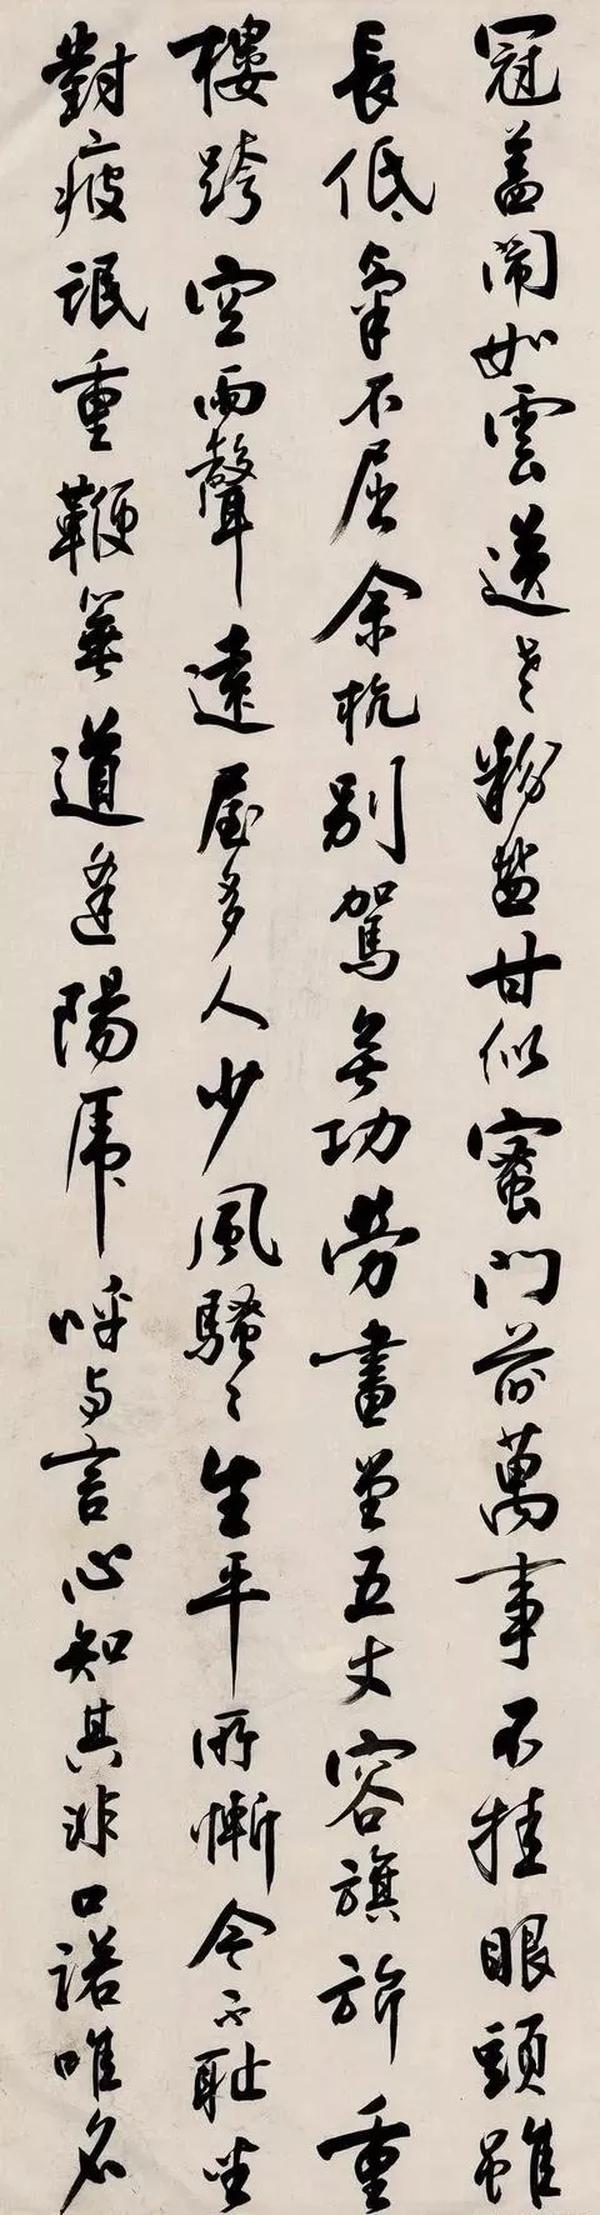 冠盖閙如雲送老粉盐甘似蜜門前萬事不挂眼頭雖
長低氣不屈余杭別駕無功勞畫堂五丈容旗旂重
樓跨空雨聲遠屋多人少風騷〻生平所慚今不耻坐
對疲氓重鞭箠道逢陽虎呼与言心知其非口諾唯名